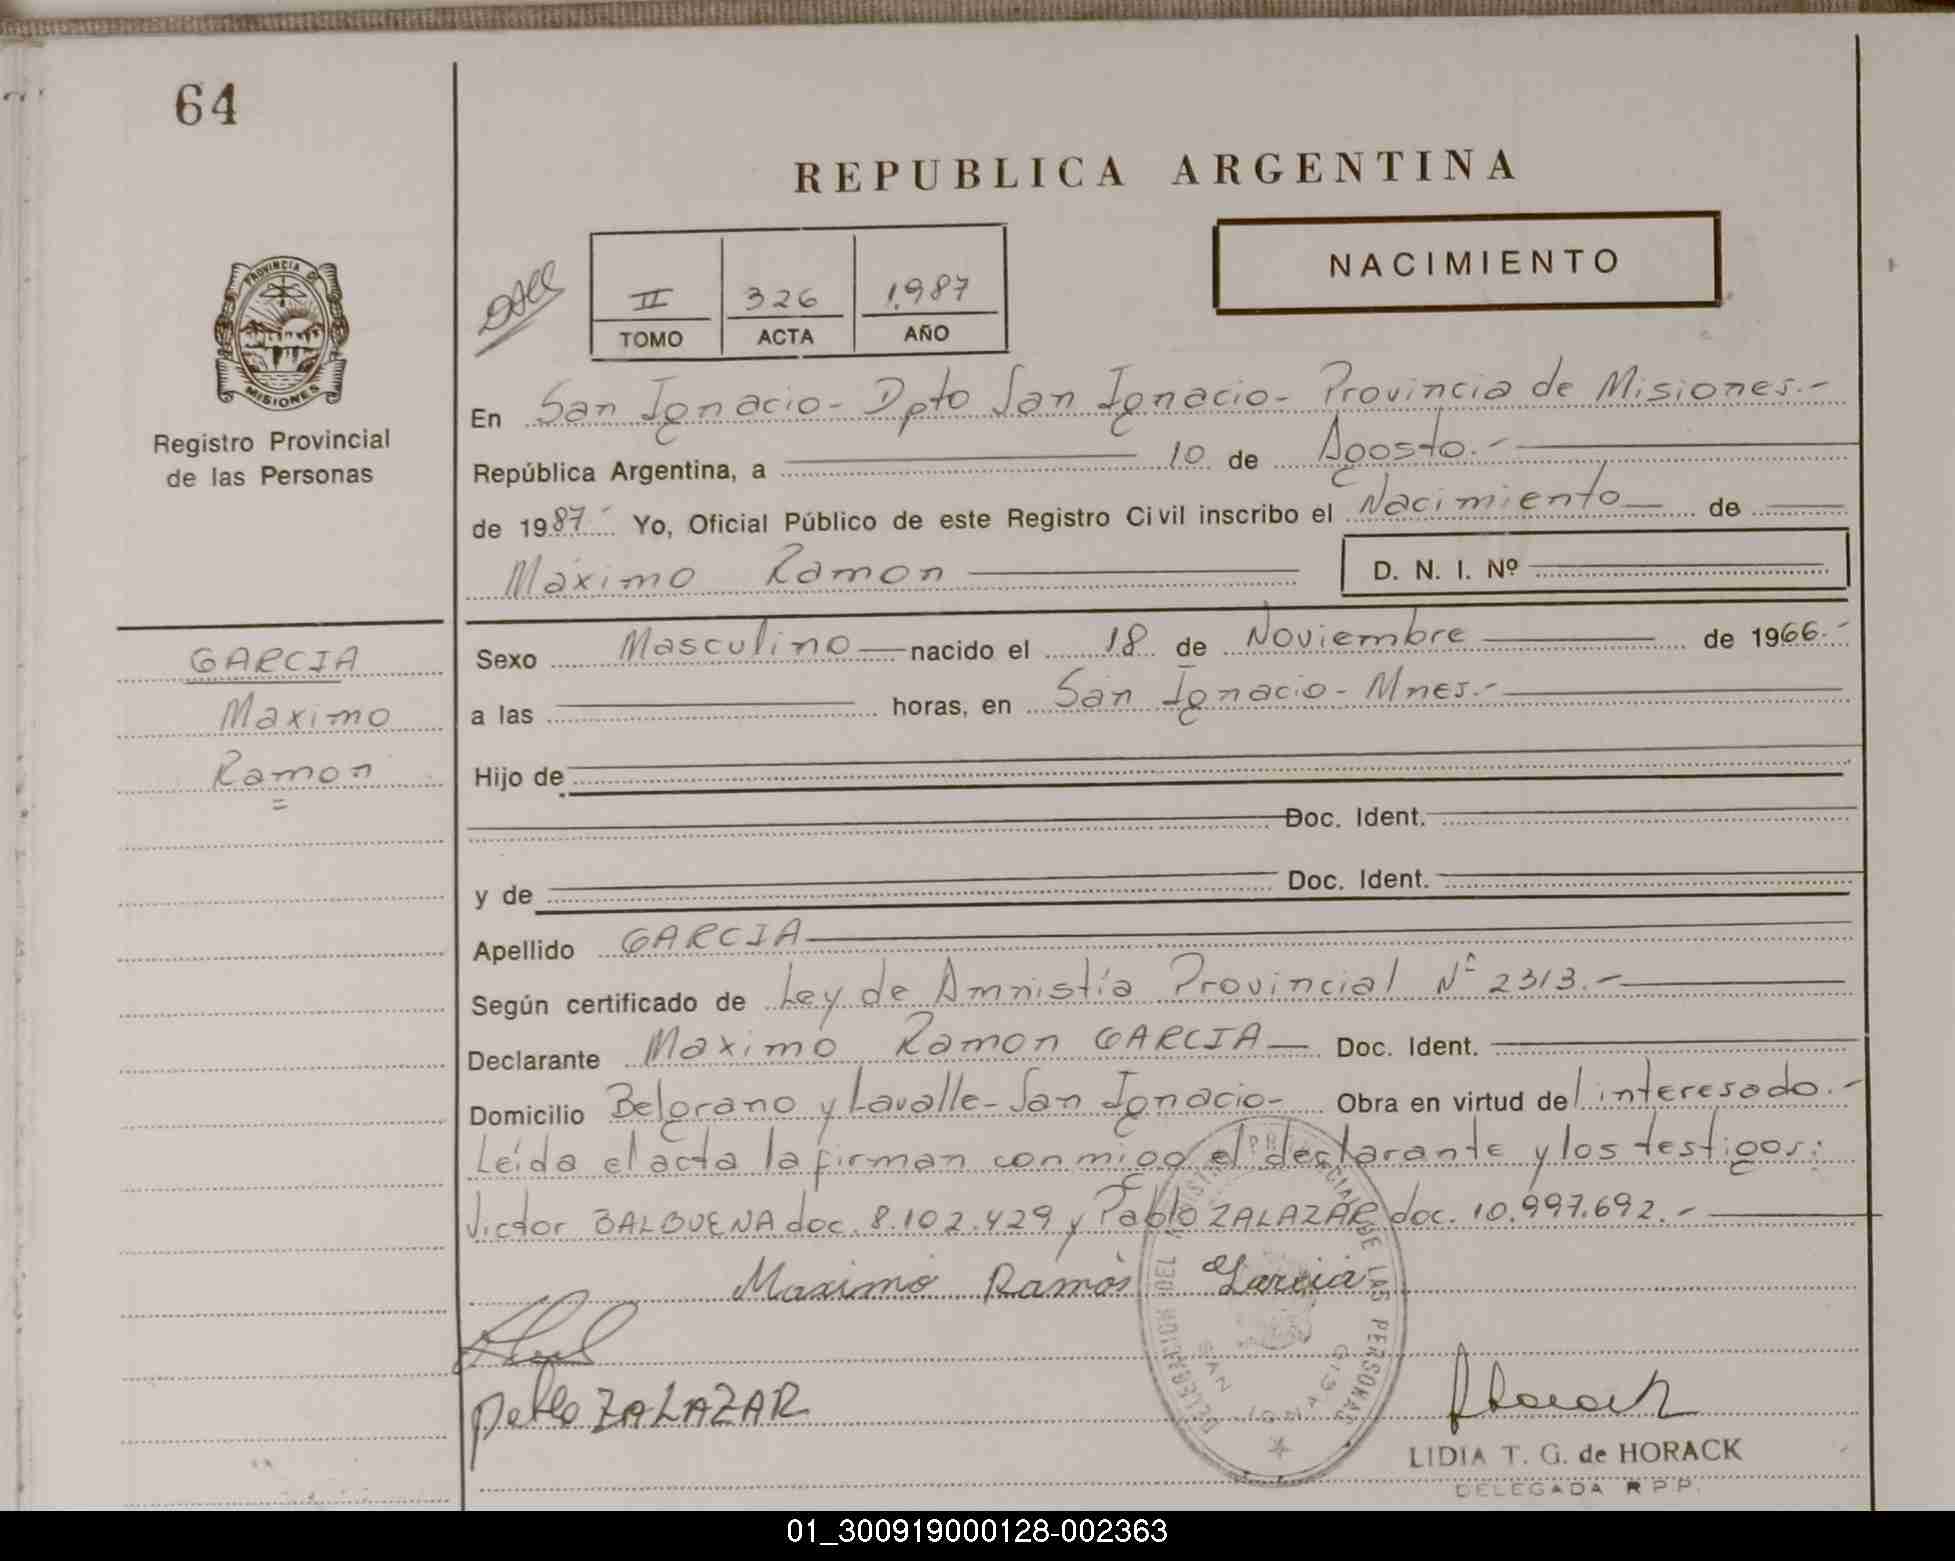 64
REPUBLICA ARGENTINA
NACIMIENTO
II 326 1.987
TOMO ACTA AÑO
PROVINCIA D
MISIONES
Registro Provincial
de las Personas
En San Ignacio - Dpto San Ignacio - Provincia de Misiones.-
República Argentina, a 10 de Agosto.-
de 1987- Yo, Oficial Público de este Registro Civil inscribo el Nacimiento de
Máximo Ramon D. N. I. Nº
GARCIA
Maximo
Ramon
=
Sexo Masculino nacido el 18 de Noviembre de 1966.-
a las horas, en San Ignacio - Mnes.-
Hijo de
Doc. Ident.
y de Doc. Ident.
Apellido GARCIA
Según certificado de Ley de Amnistía Provincial Nº 2313.-
Declarante Maximo Ramon GARCIA Doc. Ident.
Domicilio Belgrano y Lavalle - San Ignacio - Obra en virtud del interesado.-
Leída el acta la firman conmigo el declarante y los testigos:
Victor BALBUENA doc. 8.102.429 y Pablo ZALAZAR doc. 10.997.692.-
Maximo Ramòs Garcia
Pablo ZALAZAR
DELEGACION DEL REGISTRO PROVINCIAL DE LAS PERSONAS
SAN IGNACIO
Horack
LIDIA T. G. de HORACK
DELEGADA R.P.P.
01_300919000128-002363